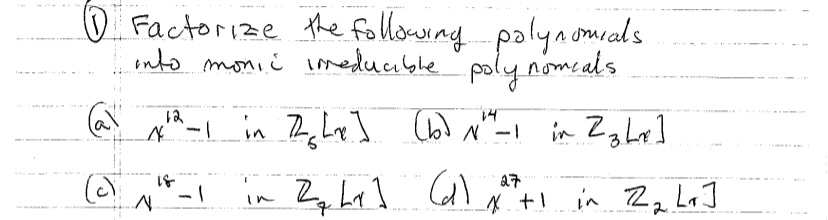 ① Factorize the following polynomials
into monic irreducible polynomials
(a) x¹²-1 in ℤ₅[x] (b) x¹⁴-1 in ℤ₃[x]
(c) x¹⁸-1 in ℤ₇[x] (d) x²⁷+1 in ℤ₂[x]